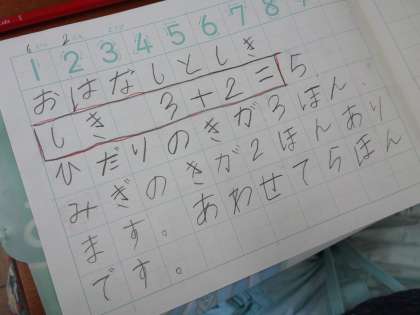 1 2 3 4 5 6 7 8
おはなしとしき
しき 3+2=5
ひだりのきが3ぼん、
みぎのきが2ほんあり
ます。あわせて5ほん
です。